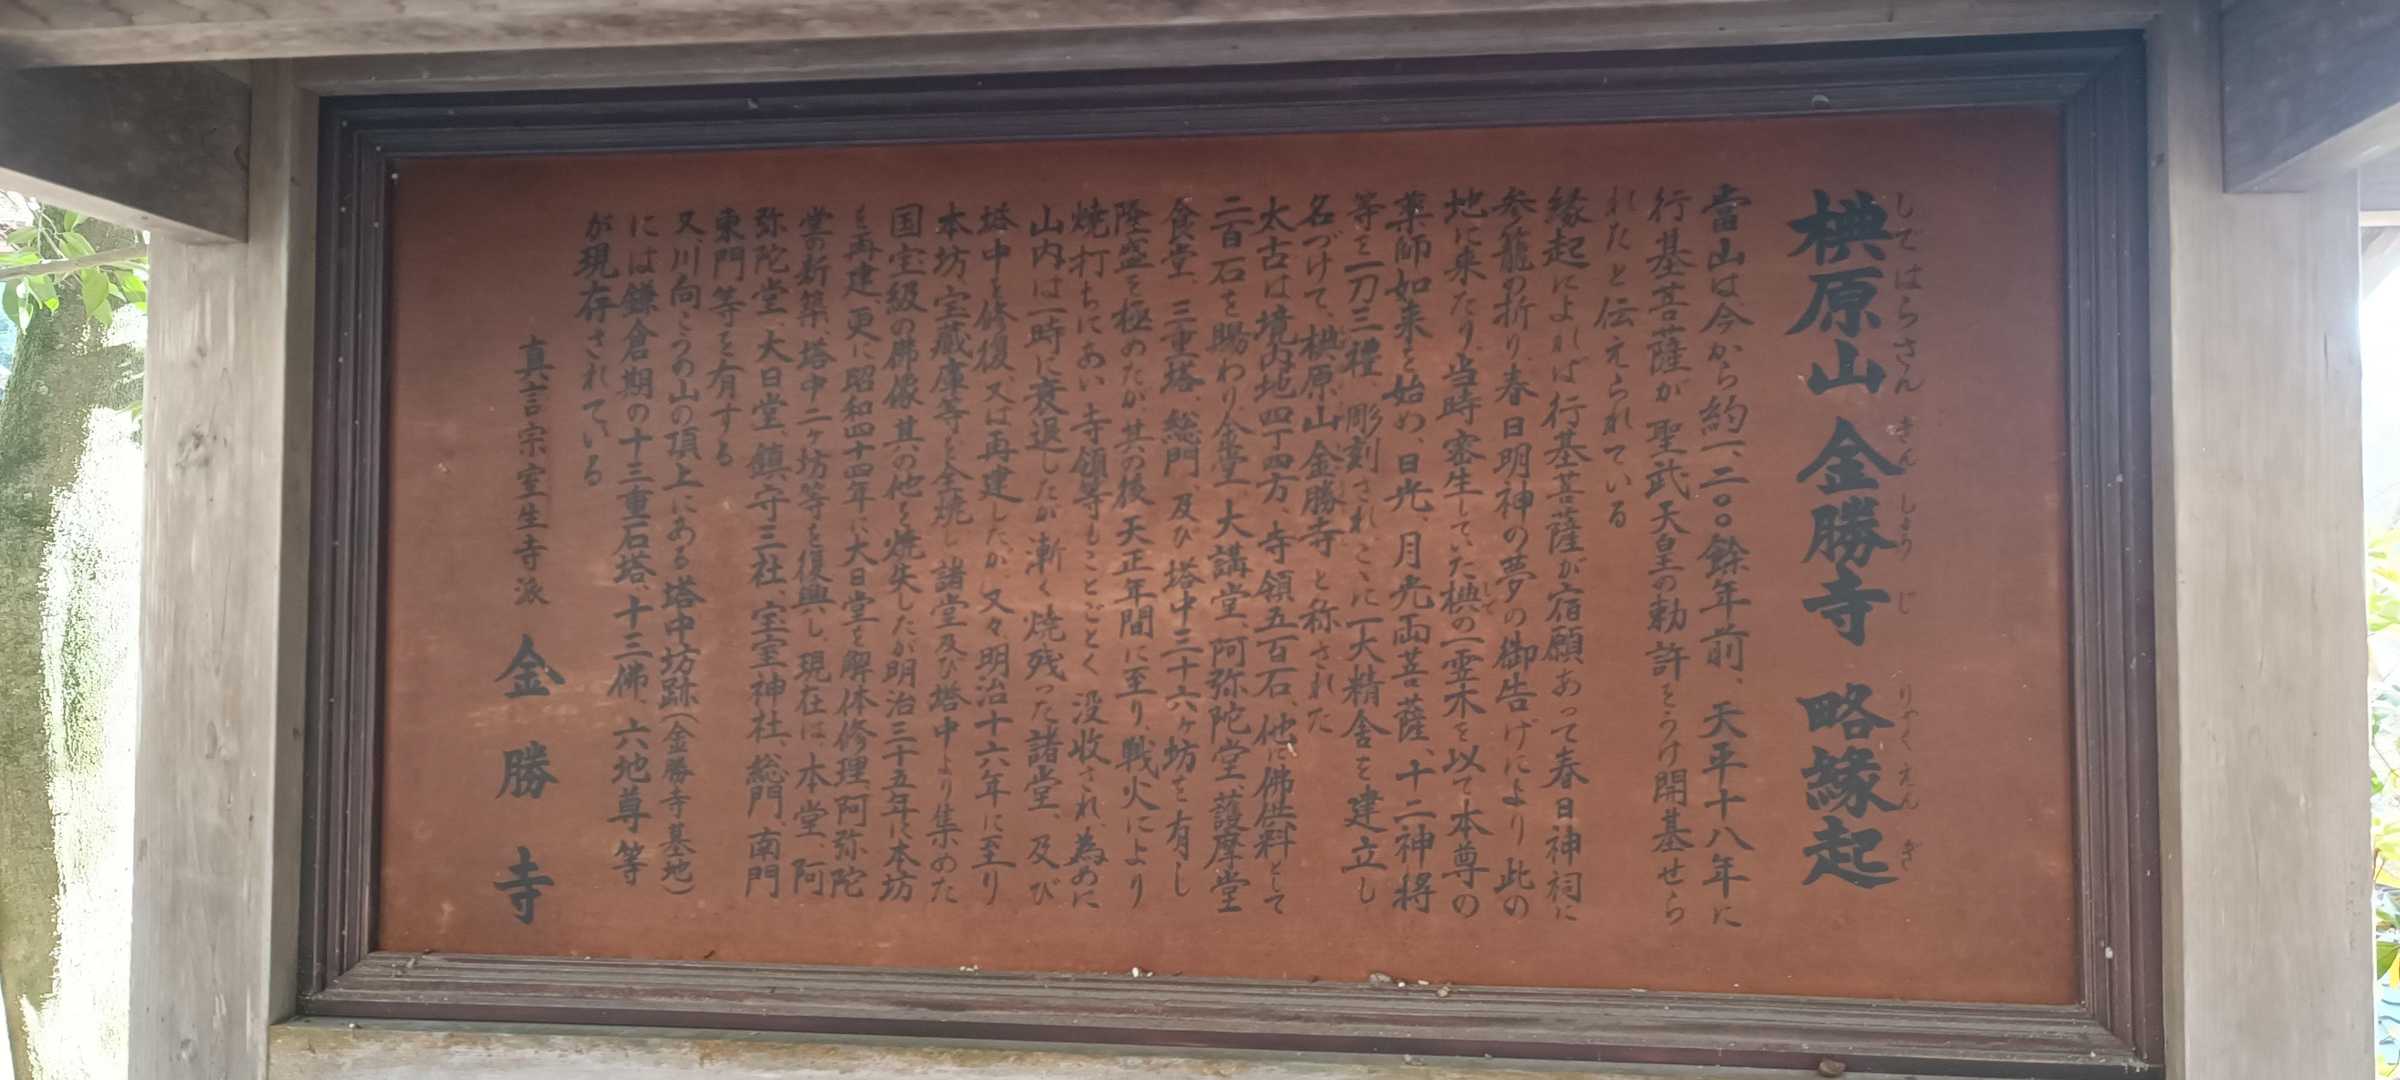 椣原山 金勝寺 略縁起
しではらさん きんしょうじ りゃくえんぎ
當山は今から約一、二〇〇餘年前、天平十八年に
行基菩薩が聖武天皇の勅許をうけ開基せら
れたと伝えられている
縁起によれば行基菩薩が宿願あって春日神祠に
参籠の折り、春日明神の夢の御告げにより此の
地に来たり、当時密生していた椣の一霊木を以て本尊の
しで
薬師如来を始め、日光、月光両菩薩、十二神将
等を一刀三禮、彫刻され、こゝに一大精舎を建立し
名づけて、椣原山金勝寺と称された
太古は境内地四丁四方、寺領五百石、他に佛供料として
二百石を賜わり金堂、大講堂、阿弥陀堂、護摩堂
食堂、三重塔、総門、及び塔中三十六ヶ坊を有し
隆盛を極めたが、其の後天正年間に至り、戦火により
焼打ちにあい寺領等もことごとく没収され、為めに
山内は一時に衰退したが漸く焼残った諸堂、及び
塔中を修復、又は再建したが、又々明治十六年に至り
本坊、宝蔵庫等を全焼し諸堂及び塔中より集めた
国宝級の佛像其の他を焼失したが明治三十五年に本坊
を再建、更に昭和四十四年に大日堂を解体修理、阿弥陀
堂の新築、塔中二ヶ坊等を復興し、現在は、本堂、阿
弥陀堂、大日堂、鎮守三社、宝室神社、総門、南門
東門等を有する
又、川向こうの山の頂上にある塔中坊跡(金勝寺墓地)
には鎌倉期の十三重石塔、十三佛、六地尊等
が現存されている
真言宗室生寺派 金勝寺